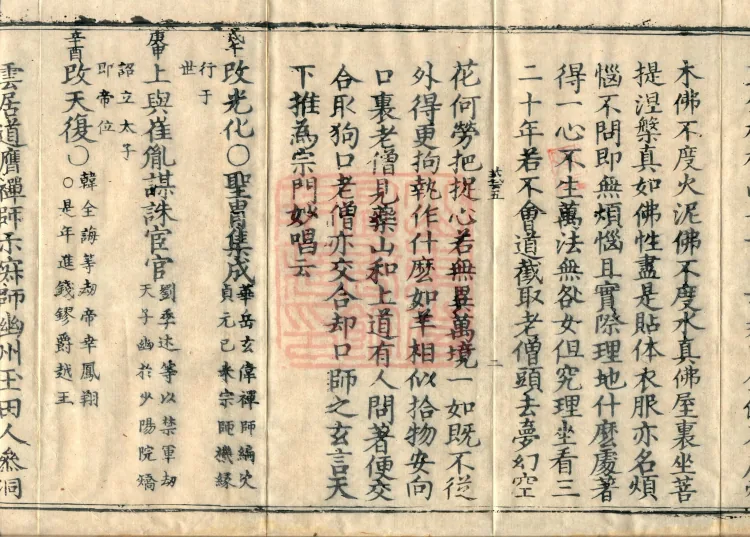 木佛不度火泥佛不度水真佛屋裏坐菩
提涅槃真如佛性盡是貼体衣服亦名煩
惱不問即無煩惱且實際理地什麼處著
得一心不生萬法無咎女但究理坐看三
二十年若不會道截取老僧頭去夢幻空
花何勞把捉心若無異萬境一如既不從
外得更拘執作什麼如羊相似拾物安向
口裏老僧見藥山和上道有人問著便交
合取狗口老僧亦交合却口師之玄言天
下推為宗門妙唱云
戊午
改光化〇聖冑集成
華岳玄偉禪師編次
貞元已來宗師機緣
行于
世
庚申
上與崔胤謀誅宦官
劉季述等以禁軍劫
天子幽於少陽院矯
詔立太子
即帝位
辛酉
改天復〇
韓全誨等劫帝幸鳳翔
〇是年進錢鏐爵越王
雲居道膺禪師示寂師幽州玉田人參洞